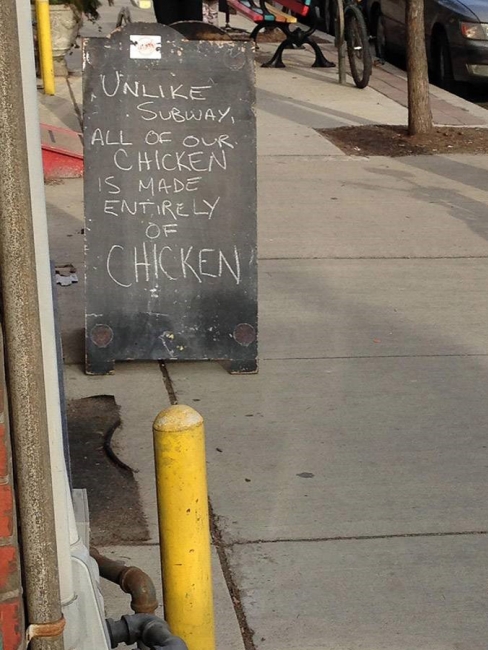 UNLIKE
SUBWAY,
ALL OF OUR
CHICKEN
IS MADE
ENTIRELY
OF
CHICKEN